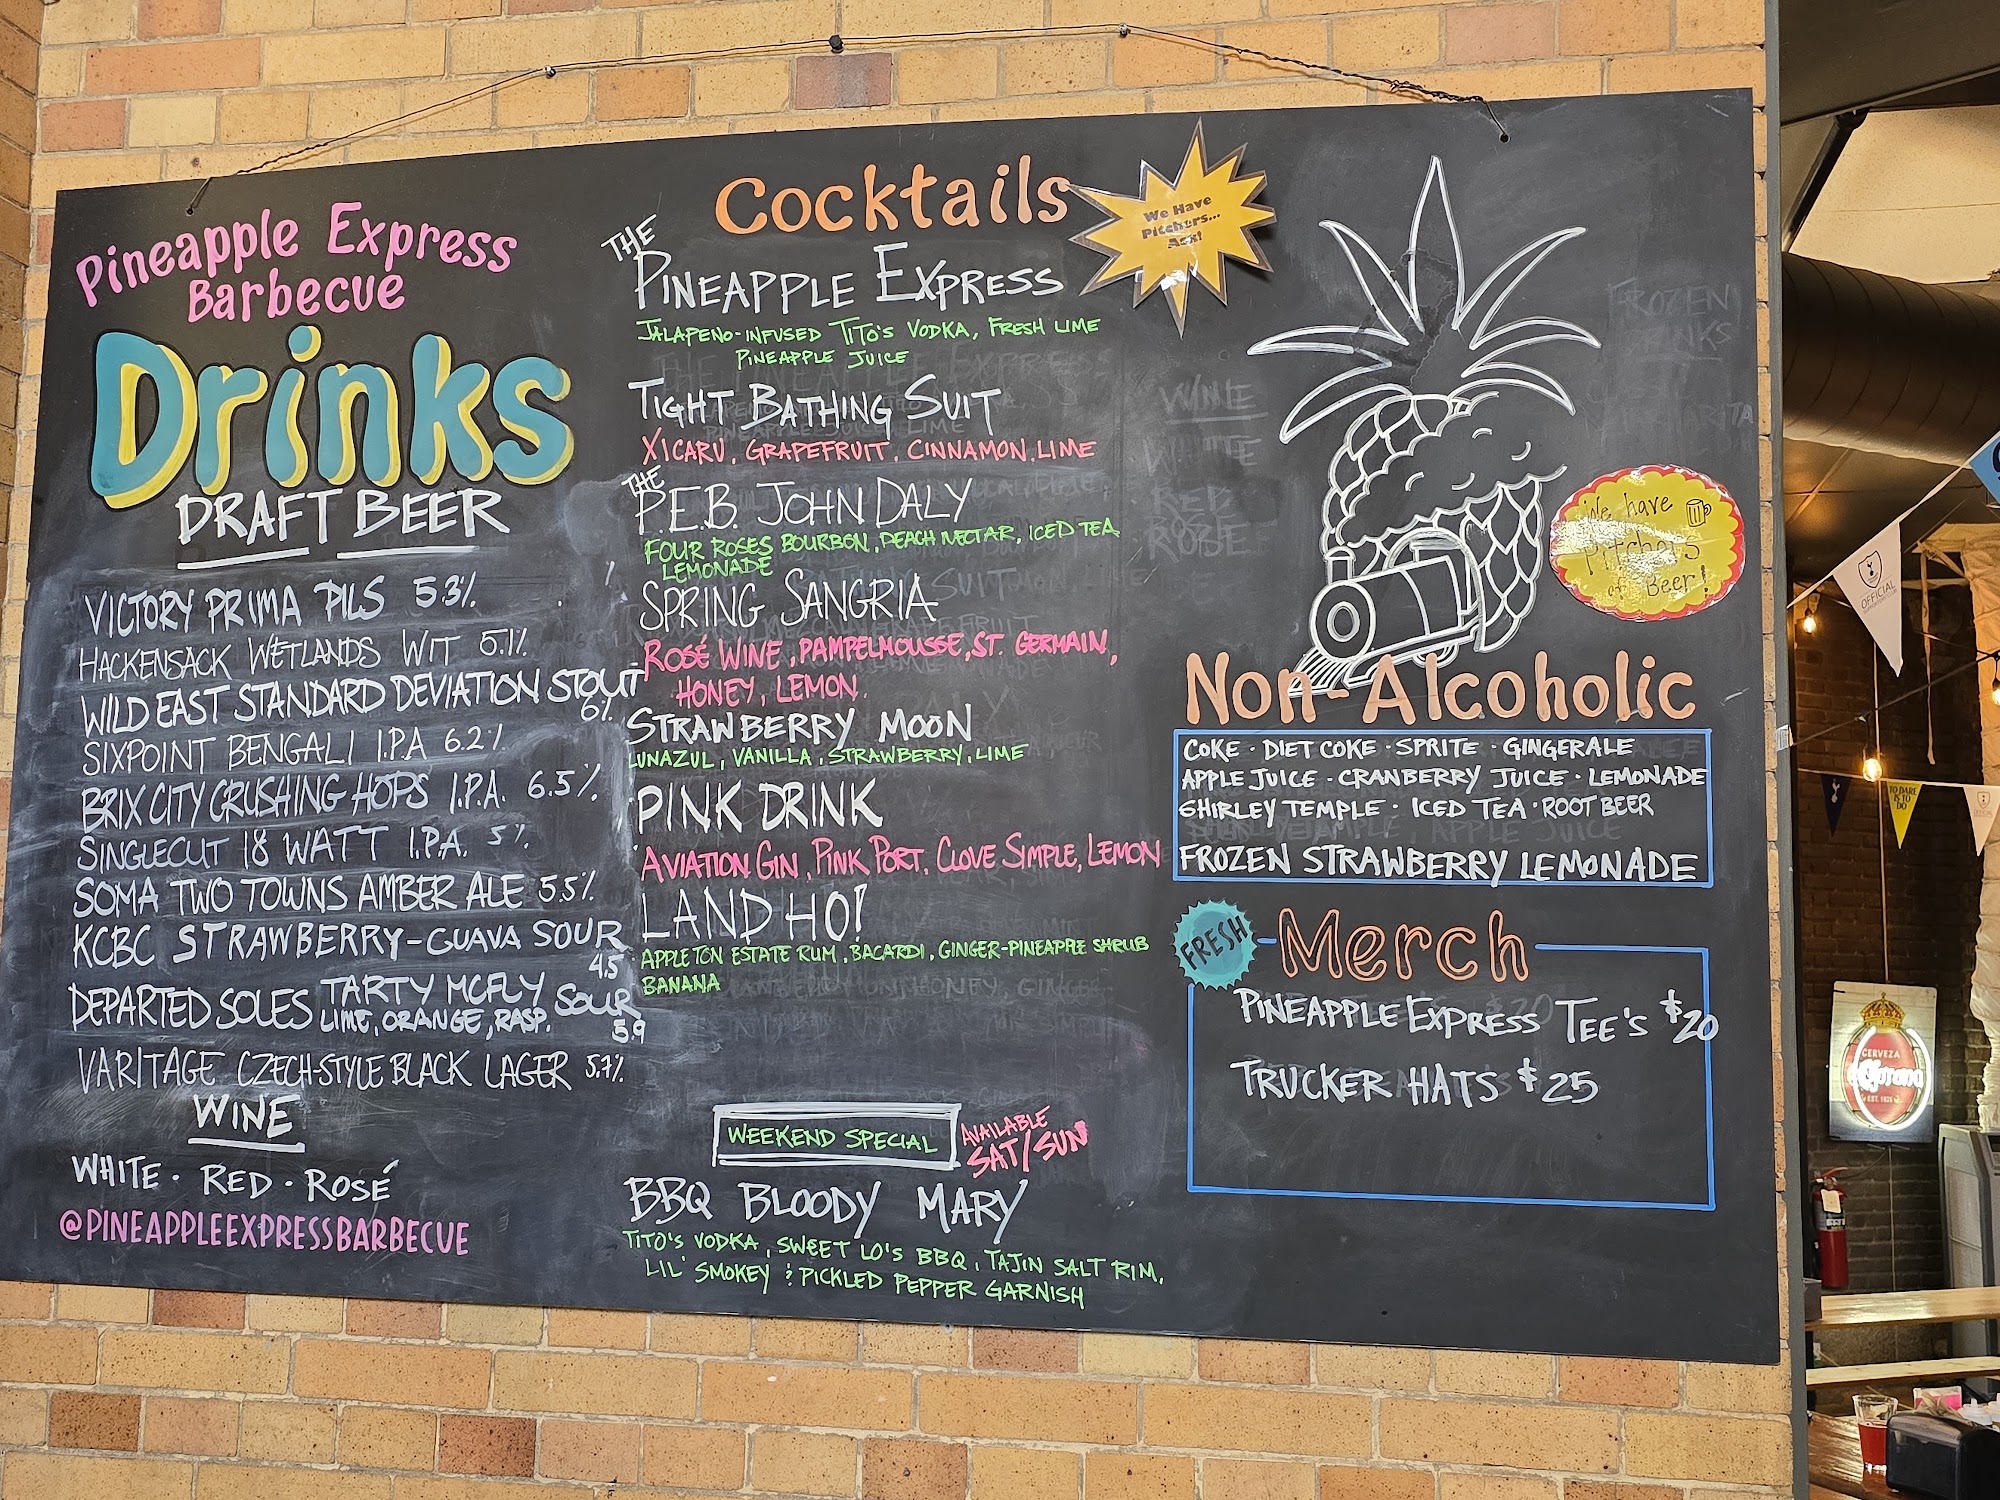 Pineapple Express
Barbecue
Drinks
DRAFT BEER
VICTORY PRIMA PILS 5.3%
HACKENSACK WETLANDS WIT 5.1%
WILD EAST STANDARD DEVIATION STOUT
6%
SIXPOINT BENGALI I.P.A 6.2%
BRIX CITY CRUSHING HOPS I.P.A. 6.5%
SINGLECUT 18 WATT I.P.A. 5%
SOMA TWO TOWNS AMBER ALE 5.5%
KCBC STRAWBERRY-GUAVA SOUR
4.5
DEPARTED SOLES TARTY MCFLY SOUR
LIME, ORANGE, RASP. 5.9
VARITAGE CZECH-STYLE BLACK LAGER 5.7%
WINE
WHITE · RED · ROSÉ
@PINEAPPLEEXPRESSBARBECUE
Cocktails
We Have
Pitchers...
Ask!
THE
PINEAPPLE EXPRESS
JALAPENO-INFUSED TITO'S VODKA, FRESH LIME
PINEAPPLE JUICE
TIGHT BATHING SUIT
XICARU, GRAPEFRUIT, CINNAMON, LIME
THE
P.E.B. JOHN DALY
FOUR ROSES BOURBON, PEACH NECTAR, ICED TEA
LEMONADE
SPRING SANGRIA
ROSÉ WINE, PAMPELMOUSSE, ST. GERMAIN,
HONEY, LEMON.
STRAWBERRY MOON
LUNAZUL, VANILLA, STRAWBERRY, LIME
PINK DRINK
AVIATION GIN, PINK PORT, CLOVE SIMPLE, LEMON
LAND HO!
APPLETON ESTATE RUM, BACARDI, GINGER-PINEAPPLE SHRUB
BANANA
WEEKEND SPECIAL
AVAILABLE
SAT/SUN
BBQ BLOODY MARY
TITO'S VODKA, SWEET LO'S BBQ, TAJIN SALT RIM,
LIL' SMOKEY & PICKLED PEPPER GARNISH
FROZEN
DRINKS
WINE
WHITE
RED
ROSE
We have
Pitchers
of Beer!
Non-Alcoholic
COKE · DIET COKE · SPRITE · GINGERALE
APPLE JUICE · CRANBERRY JUICE · LEMONADE
SHIRLEY TEMPLE · ICED TEA · ROOT BEER
FROZEN STRAWBERRY LEMONADE
FRESH
Merch
PINEAPPLE EXPRESS TEE'S $20
TRUCKER HATS $25
OFFICIAL
TO DARE
IS TO
DO
CERVEZA
Corona